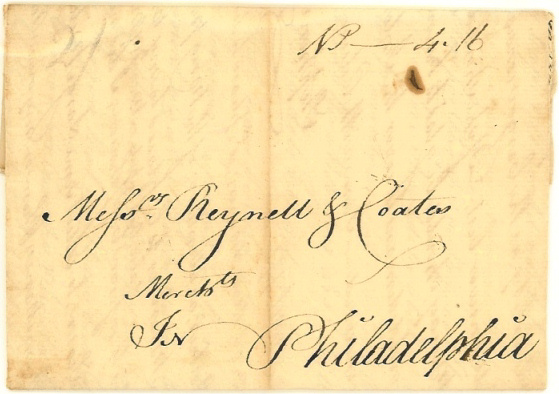 NP — 4.16
Messrs. Reynell & Coates
Merchts
In Philadelphia